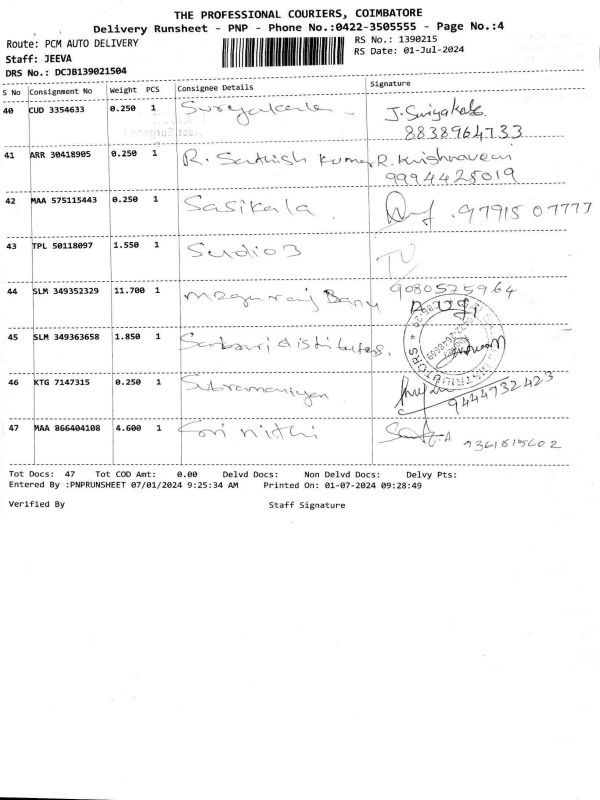 THE PROFESSIONAL COURIERS, COIMBATORE
Delivery Runsheet - PNP - Phone No.:0422-3505555 - Page No.:4
Route: PCM AUTO DELIVERY RS No.: 1390215
Staff: JEEVA RS Date: 01-Jul-2024
DRS No.: DCJB139021504
S No Consignment No Weight PCS Consignee Details Signature
40 CUD 3354633 0.250 1 Suryakala J. Suriyakala
8838964733
41 ARR 30418905 0.250 1 R. Sathish Kumar R. Krishnaveni
9994425019
42 MAA 575115443 0.250 1 Sasikala 97915 07777
43 TPL 50118097 1.550 1 Studio3 TV
44 SLM 349352329 11.700 1 Banu 9080525964
45 SLM 349363658 1.850 1 distributors.
46 KTG 7147315 0.250 1 Subramaniyan 9444732423
47 MAA 866404108 4.600 1 Sri nithi 9361815602
Tot Docs: 47 Tot COD Amt: 0.00 Delvd Docs: Non Delvd Docs: Delvy Pts:
Entered By :PNPRUNSHEET 07/01/2024 9:25:34 AM Printed On: 01-07-2024 09:28:49
Verified By Staff Signature